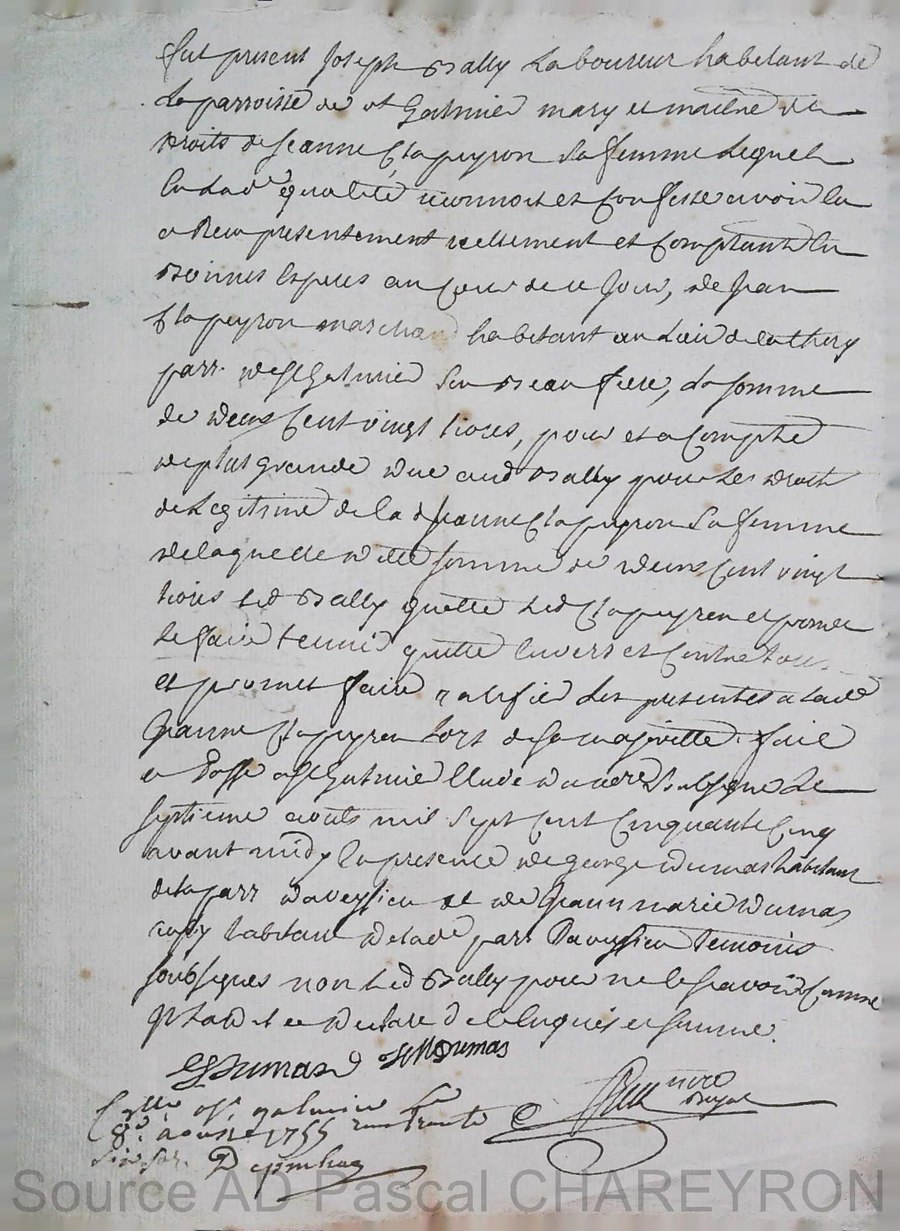 fut present Joseph Bally Laboureur habitant de
La parroisse de st Galmier mary et maitre des
droits de Jeanne Clapeyron sa femme Lequel
en lad. qualité reconnoit et confesse avoir eu
et Receu presentement reellement et comptant en
bonnes especes au cours de ce jour, de Jean
Clapeyron marchand habitant au Lieu de
parr. de st Galmier son beau frere, La somme
de deux cent vingt livres, pour et a compte
de plus grande due aud Bally pour Les droits
de Legitime de lad Jeanne Clapeyron sa femme
de laquelle ditte somme de deux cent vingt
livres Led Bally quitte Led Clapeyron et promet
Le faire tenir quitte envers et contre tous
et promet faire ratifier Les presentes a lade
Jeanne Clapeyron Lors de sa majoritté. fait
et Passé a st Galmier Etude du no.re soubsigné Le
septieme aoust mil sept cent cinquante cinq
avant midy En presence de george Dumas habitant
de la parr d'aveysieu et de Jean marie Dumas
habitant de lade parr d'aveysieu temoins
soubsignes non Led Bally pour ne le scavoir comme
il a declaré de ce Enquis et sommé.
G Dumas JM Dumas
nore
Royal
C.llé a st. galmier Le
8e. aoust 1755 receu trente
six sols
Source AD Pascal CHAREYRON